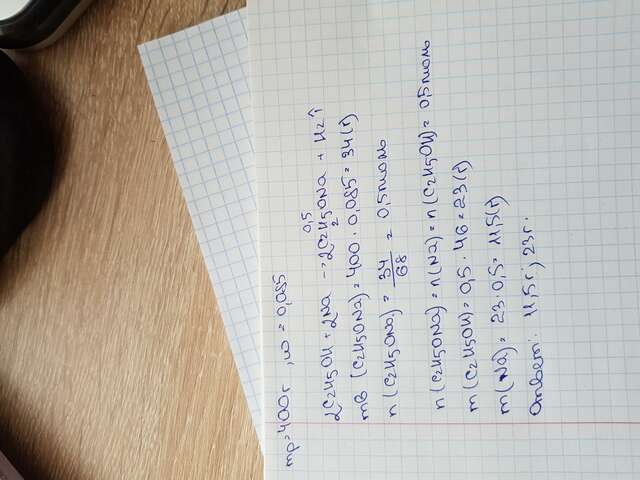 mр=400г, ω = 0,085
0,5
2C2H5OH + 2Na → 2C2H5ONa + H2↑
2
mв (C2H5ONa) = 400 · 0,085 = 34(г)
n (C2H5ONa) = 34/68 = 0,5моль
n (C2H5ONa) = n(Na) = n(C2H5OH) = 0,5моль
m (C2H5OH) = 0,5 · 46 = 23(г)
m (Na) = 23 · 0,5 = 11,5(г)
Ответ: 11,5г; 23г.